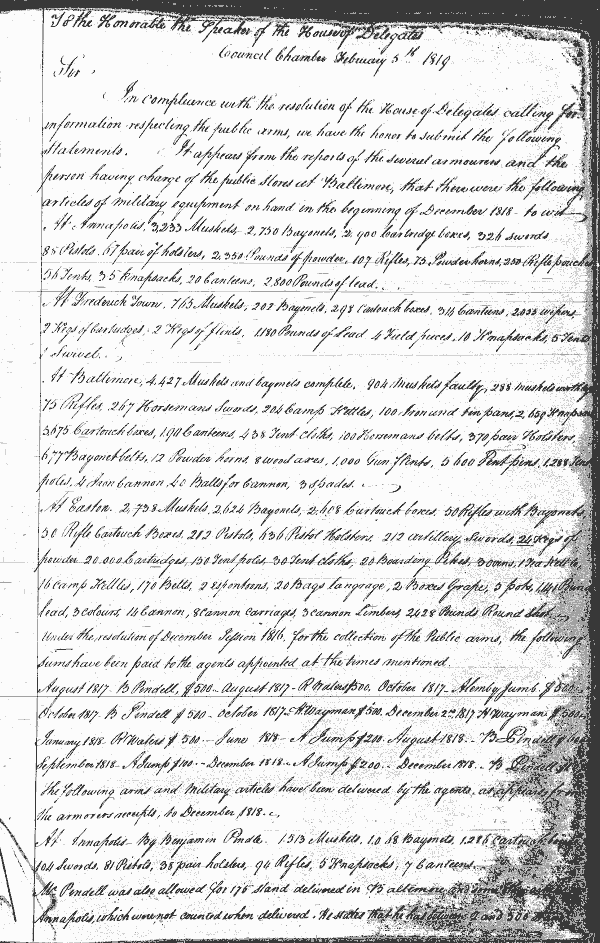 To the Honorable the Speaker of the House of Delegates
Council Chamber February 5th 1819
Sir
In compliance with the resolution of the House of Delegates calling for
information respecting the public arms, we have the honor to submit the following
statements. It appears from the reports of the several armourers and the
person having charge of the public stores at Baltimore, that there were the following
articles of military equipment on hand in the beginning of December 1818 - to wit
At Annapolis, 3,233 Muskets - 2,730 Bayonets, 2,900 Cartridge boxes, 326 swords
88 Pistols, 67 pair of holsters, 2,350 Pounds of powder, 107 Rifles, 75 Powder horns, 250 Rifle pouches
56 Tents, 35 Knapsacks, 20 Canteens, 2,800 Pounds of lead.
At Frederick Town. 763 Muskets, 202 Bayonets, 298 Cartouch boxes, 314 Canteens, 2033 wipers
2 Kegs of Cartridges, 2 Kegs of flints, 1180 Pounds of Lead 4 Field pieces, 10 Knapsacks, 5 Tents
1 Swivel.
At Baltimore, 4,427 Muskets and bayonets complete, 904 muskets faulty, 288 muskets
75 Rifles, 267 Horsemans Swords, 204 Camp Kettles, 100 Iron and tin pans, 2,659 Knapsacks
5675 Cartouch boxes, 190 Canteens, 438 Tent cloths, 100 Horsemans belts, 370 pair Holsters,
677 Bayonet belts, 12 Powder horns, 8 wood axes, 1,000 Gun flints, 5600 Tent pins, 1,288 Tent
poles, 4 Iron Cannon, 40 Balls for Cannon, 3 spades.
At Easton. 2,738 Muskets, 2,624 Bayonets, 2,608 Cartouch boxes, 50 Rifles with Bayonets
50 Rifle Cartouch Boxes, 282 Pistols, 636 Pistol Holsters, 212 artillery Swords, 24 Kegs of
powder 20,000 Cartridges, 150 Tent poles, 30 Tent cloths, 20 Boarding Pikes, 3 ovens, 1 Tea Kettle,
16 Camp Kettles, 170 Belts, 2 espontoons, 20 Bags langrage, 2 Boxes Grape, 5 pots,
lead, 3 colours, 14 Cannon, 8 cannon carriages, 3 cannon limbers, 2428 Pounds Round Shot.
Under the resolution of December Session 1816, for the collection of the Public arms, the following
sums have been paid to the agents appointed at the times mentioned.
August 1817 - B Pendell, $500 - August 1817 - R Waters $500. October 1817 - Alemby Jump $500
October 1817 B Pendell $500 - October 1817 - H Wayman $500. December 2nd 1817 H Wayman $500
January 1818 - R Waters $500 - June 1818 - A Jump $200 August 1818 - B Pendell $
September 1818 - A Jump $100 - December 1818 - A Jump $200 - December 1818 - B Pendell $
The following arms and military articles have been delivered by the agents, as appears from
the armorers receipts, to December 1818.
At Annapolis - By Benjamin Pindle. 1,513 Muskets, 1,068 Bayonets, 1,286 Cartouch boxes
104 Swords, 81 Pistols, 38 pair holsters, 94 Rifles, 5 Knapsacks, 7 Canteens.
Mr Pendell was also allowed for 176 stand delivered in Baltimore, and some
Annapolis, which were not counted when delivered. He states that he has between 2 and 300